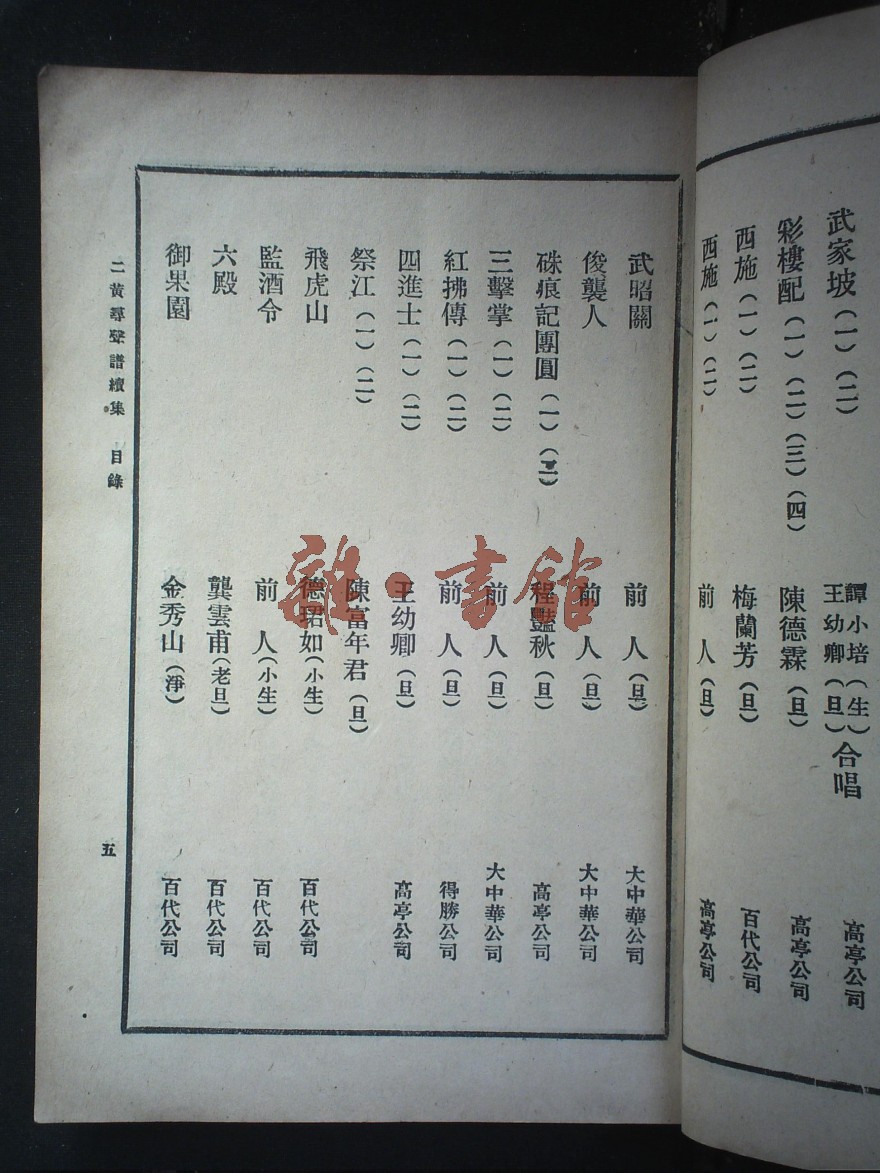 武家坡（一）（二） 譚小培（生）王幼卿（旦）合唱 高亭公司
彩樓配（一）（二）（三）（四） 陳德霖（旦） 高亭公司
西施（一）（二） 梅蘭芳（旦） 百代公司
西施（一）（二） 前人（旦） 高亭公司
武昭關 前人（旦） 大中華公司
俊襲人 前人（旦） 大中華公司
硃痕記團圓（一）（二） 程豔秋（旦） 高亭公司
三擊掌（一）（二） 前人（旦） 大中華公司
紅拂傳（一）（二） 前人（旦） 得勝公司
四進士（一）（二） 王幼卿（旦） 高亭公司
祭江（一）（二） 陳富年君（旦）
飛虎山 德珺如（小生） 百代公司
監酒令 前人（小生） 百代公司
六殿 龔雲甫（老旦） 百代公司
御果園 金秀山（淨） 百代公司
二黃尋聲譜續集 目錄 五
雜·書館